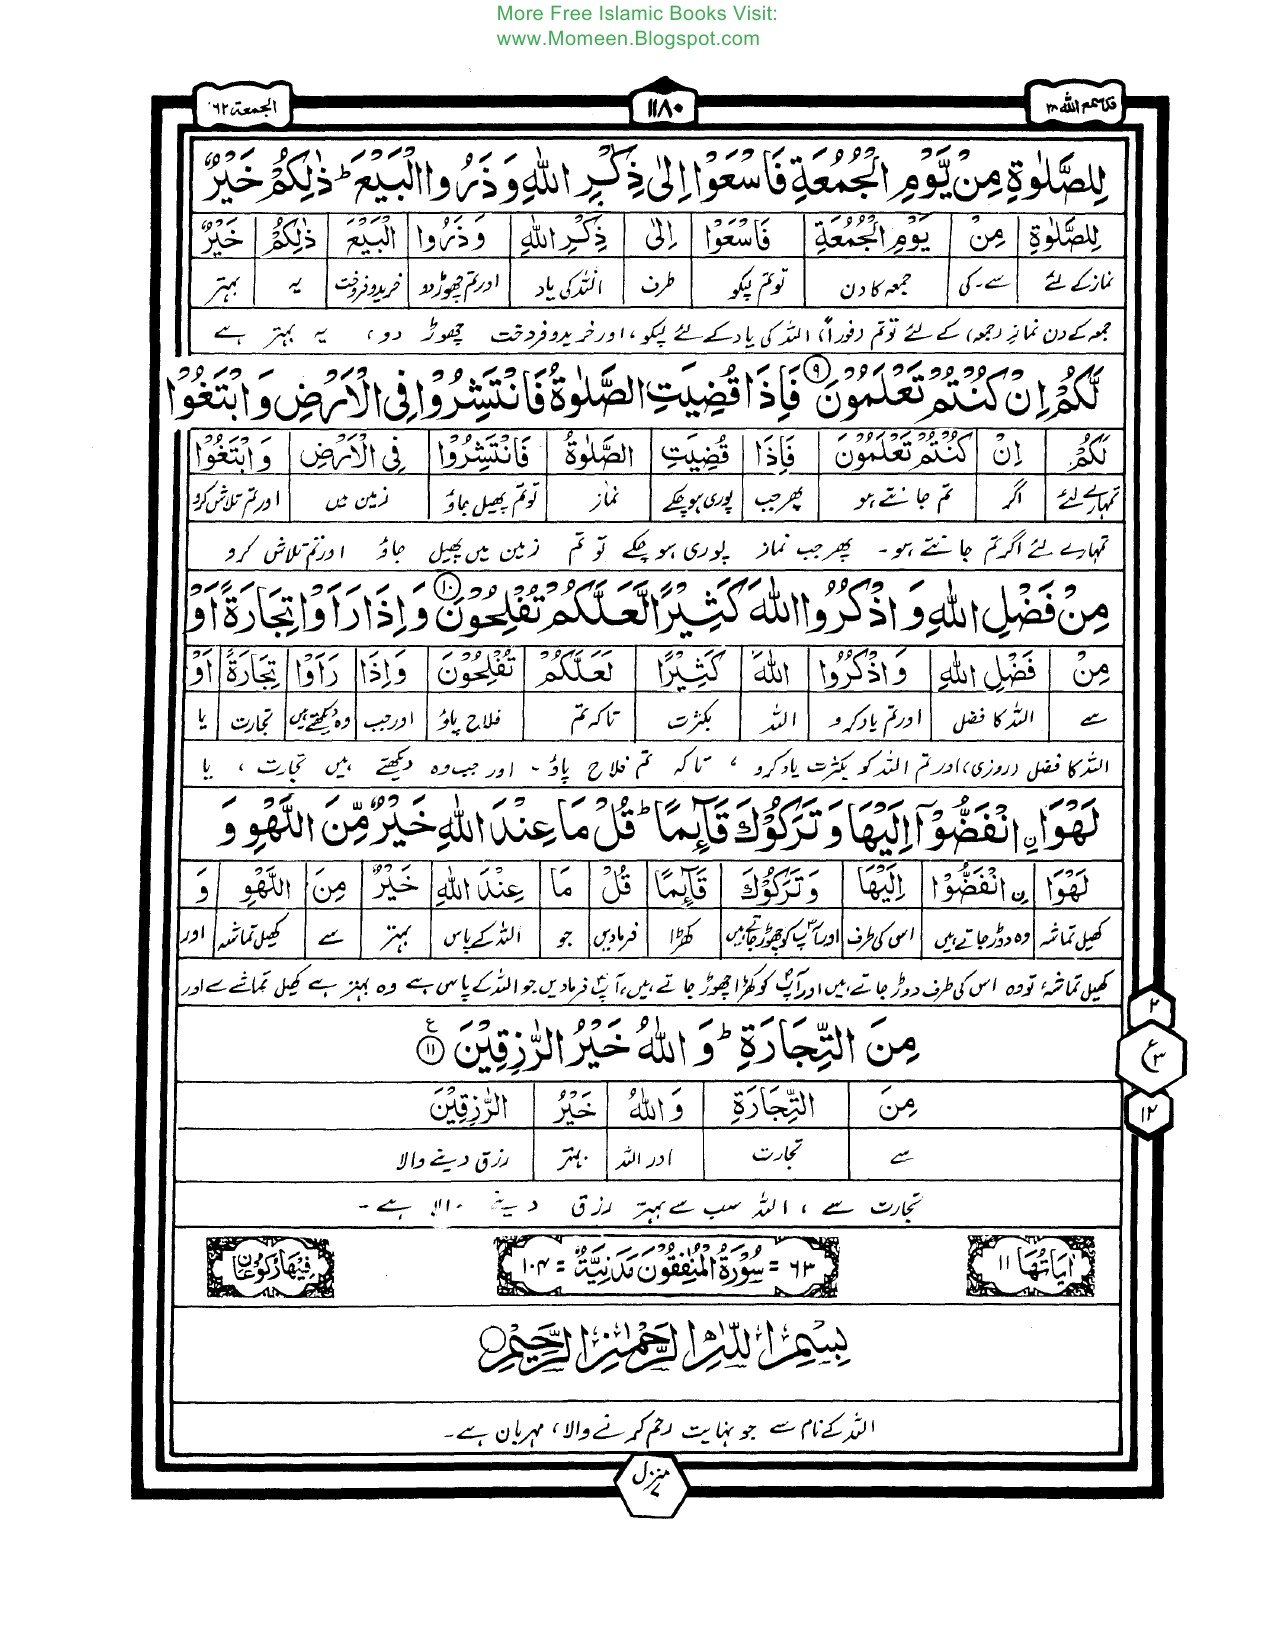 More Free Islamic Books Visit:
www.Momeen.Blogspot.com
قد سمع الله ۲۸
۱۱۸۰
الجمعة ۶۲
لِلصَّلٰوةِ مِنْ يَّوْمِ الْجُمُعَةِ فَاسْعَوْا اِلٰى ذِكْرِ اللّٰهِ وَ ذَرُوا الْبَيْعَ ؕ ذٰلِكُمْ خَيْرٌ
لِلصَّلٰوةِ مِنْ يَوْمِ الْجُمُعَةِ فَاسْعَوْا اِلٰى ذِكْرِ اللّٰهِ وَ ذَرُوا الْبَيْعَ ذٰلِكُمْ خَيْرٌ
نماز کے لئے سے۔ کی جمعہ کا دن تو تم لپکو طرف اللہ کی یاد اور تم چھوڑ دو خرید و فروخت یہ بہتر
جمعہ کے دن نماز (جمعہ) کے لئے تو تم (فوراً) اللہ کی یاد کے لئے لپکو، اور خرید و فروخت چھوڑ دو، یہ بہتر ہے
لَّكُمْ اِنْ كُنْتُمْ تَعْلَمُوْنَ ۹ فَاِذَا قُضِيَتِ الصَّلٰوةُ فَانْتَشِرُوْا فِى الْاَرْضِ وَ ابْتَغُوْا
لَكُمْ اِنْ كُنْتُمْ تَعْلَمُوْنَ فَاِذَا قُضِيَتِ الصَّلٰوةُ فَانْتَشِرُوْا فِى الْاَرْضِ وَ ابْتَغُوْا
تمہارے لئے اگر تم جانتے ہو پھر جب پوری ہو چکے نماز تو تم پھیل جاؤ زمین میں اور تم تلاش کرو
تمہارے لئے اگر تم جانتے ہو۔ پھر جب نماز پوری ہو چکے تو تم زمین میں پھیل جاؤ اور تم تلاش کرو
مِنْ فَضْلِ اللّٰهِ وَ اذْكُرُوا اللّٰهَ كَثِيْرًا لَّعَلَّكُمْ تُفْلِحُوْنَ ۱۰ وَ اِذَا رَاَوْا تِجَارَةً اَوْ
مِنْ فَضْلِ اللّٰهِ وَ اذْكُرُوا اللّٰهَ كَثِيْرًا لَعَلَّكُمْ تُفْلِحُوْنَ وَ اِذَا رَاَوْا تِجَارَةً اَوْ
سے اللہ کا فضل اور تم یاد کرو اللہ بکثرت تاکہ تم فلاح پاؤ اور جب وہ دیکھتے ہیں تجارت یا
اللہ کا فضل (روزی) اور تم اللہ کو بکثرت یاد کرو، تاکہ تم فلاح پاؤ۔ اور جب وہ دیکھتے ہیں تجارت، یا
لَهْوَا ۨ انْفَضُّوْۤا اِلَيْهَا وَ تَرَكُوْكَ قَآئِمًا ؕ قُلْ مَا عِنْدَ اللّٰهِ خَيْرٌ مِّنَ اللَّهْوِ وَ
لَهْوَا ۨ انْفَضُّوْا اِلَيْهَا وَ تَرَكُوْكَ قَآئِمًا قُلْ مَا عِنْدَ اللّٰهِ خَيْرٌ مِنَ اللَّهْوِ وَ
کھیل تماشہ وہ دوڑ جاتے ہیں اس کی طرف اور آپؐ کو چھوڑ جاتے ہیں کھڑا فرمادیں جو اللہ کے پاس بہتر سے کھیل تماشہ اور
کھیل تماشہ، تو وہ اس کی طرف دوڑ جاتے ہیں اور آپؐ کو کھڑا چھوڑ جاتے ہیں، آپؐ فرمادیں جو اللہ کے پاس ہے وہ بہتر ہے کھیل تماشے سے اور
۲
مِنَ التِّجَارَةِ ؕ وَ اللّٰهُ خَيْرُ الرّٰزِقِيْنَ ۱۱ ع
ع ۳
مِنَ التِّجَارَةِ وَ اللّٰهُ خَيْرُ الرّٰزِقِيْنَ
۱۲
سے تجارت اور اللہ بہتر رزق دینے والا
تجارت سے، اللہ سب سے بہتر رزق دینے والا ہے۔
اٰيَاتُهَا ۱۱
۶۳ = سُوْرَةُ الْمُنٰفِقُوْنَ مَدَنِيَّةٌ = ۱۰۴
فِيْهَا رُكُوْعَانِ
بِسْمِ اللّٰهِ الرَّحْمٰنِ الرَّحِيْمِ
اللہ کے نام سے جو نہایت رحم کرنے والا، مہربان ہے۔
منزل ۷